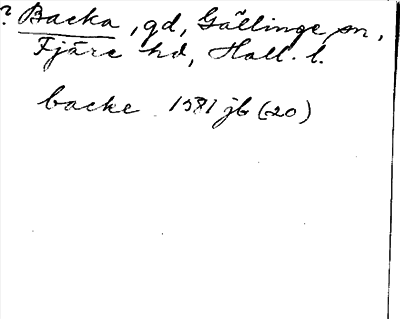 ? Backa, gd, Gällinge sn,
Fjäre hd, Hall. l.
backe 1581 jb (20)